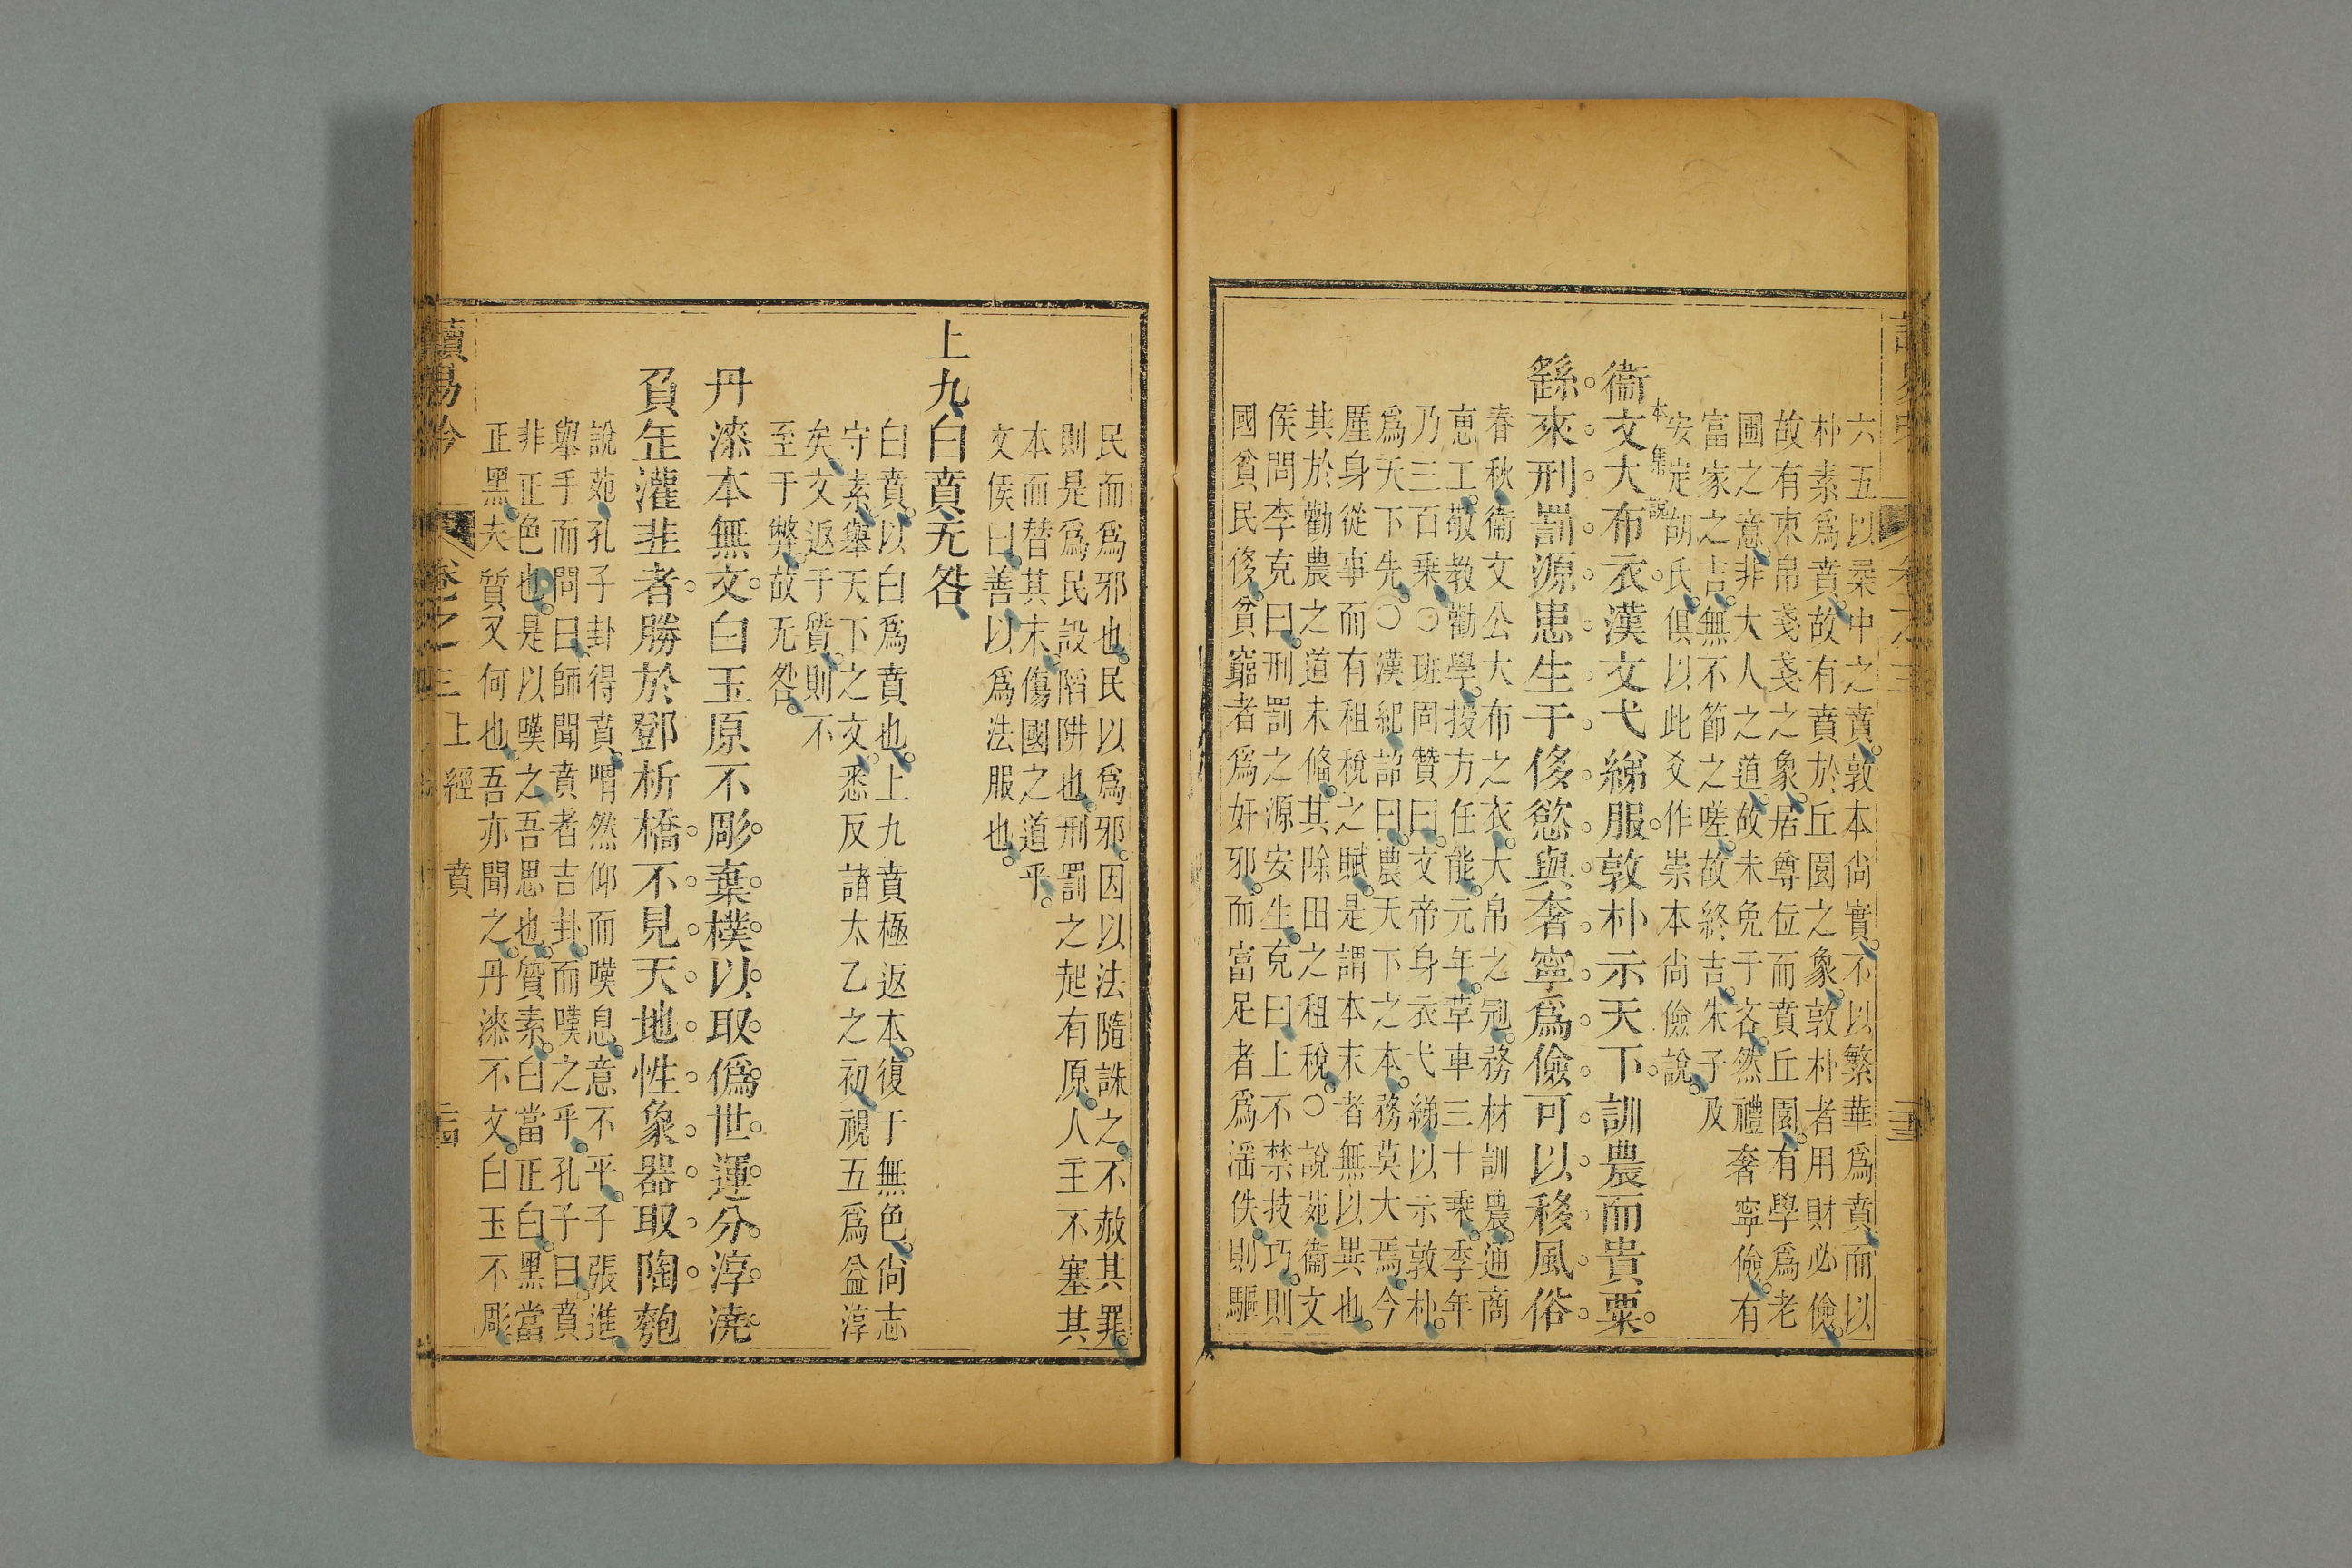 六五以柔中之賁敦本尚實不以繁華爲賁而以
朴素爲賁故有賁於丘園之象敦朴者用財必儉
故有束帛戔戔之象居尊位而賁丘園有學爲老
圃之意非大人之道故未免于吝然禮奢寧儉有
富家之吉無不節之嗟故終吉朱子及
安定胡氏俱以此爻作崇本尚儉說
本集說
衞文大布衣漢文弋綈服敦朴示天下訓農而貴粟
繇來刑罰源患生于侈慾與奢寧爲儉可以移風俗
春秋衞文公大布之衣大帛之冠務材訓農通商
惠工敬教勸學授方任能元年革車三十乘季年
乃三百乘○班固贊曰文帝身衣弋綈以示敦朴
爲天下先○漢紀詔曰農天下之本務莫大焉今
厪身從事而有租稅之賦是謂本末者無以異也
其於勸農之道未俻其除田之租稅○說苑衞文
侯問李克曰刑罰之源安生克曰上不禁技巧則
國貧民侈貧窮者爲奸邪而富足者爲淫佚則驅
民而爲邪也民以爲邪因以法隨誅之不赦其罪
則是爲民設陷阱也刑罰之起有原人主不塞其
本而替其末傷國之道乎
文侯曰善以爲法服也
上九白賁无咎
白賁以白爲賁也上九賁極返本復于無色尚志
守素舉天下之文悉反諸太乙之初視五爲益淳
矣文返于質則不
至于弊故无咎
丹漆本無文白玉原不彫棄樸以取僞世運分淳澆
負缶灌韭者勝於鄧析橋不見天地性象器取陶匏
說苑孔子卦得賁喟然仰而嘆息意不平子張進
舉手而問曰師聞賁者吉卦而嘆之乎孔子曰賁
非正色也是以嘆之吾思也質素白當正白黑當
正黑夫質又何也吾亦聞之丹漆不文白玉不彫
讀易吟 卷之三 上經 賁